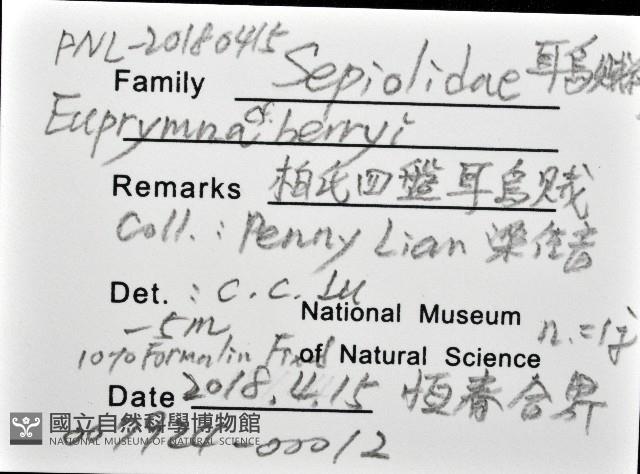 PNL-20180415
Family Sepiolidae 耳烏賊科
Euprymna cf. berryi
Remarks 柏氏四盤耳烏賊
Coll. : Penny Lian 梁佳音
Det. : C. C. Lu
National Museum
-5m n.=1♀
10% Formalin Fixed of Natural Science
Date 2018.4.15 恆春合界
國立自然科學博物館
NATIONAL MUSEUM OF NATURAL SCIENCE
-00012